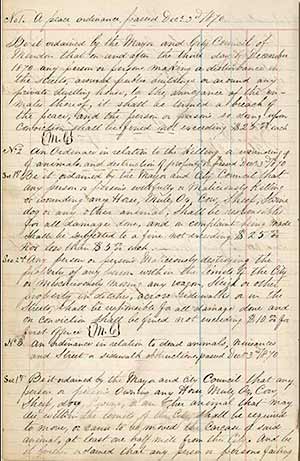 No 1. A peace ordinance, passed Dec 3rd 1870.
Be it ordained by the Mayor and City Council of
Mendon that on and after the third day of December
1870 any person or persons making a disturbance in
the streets, around public buildings or around any
private dwelling house, to the annoyance of the in-
mates thereof, it shall be termed a breach of
the peace, and the person or persons so doing upon
Conviction shall be fined not exceeding $25 each
No 2 An Ordinance in relation to the Killing or wounding
of animals, and destruction of property, passed Dec 3rd 1870
Sec 1st Be it ordained by the Mayor and City Council that
any person or persons wilfully or Maliciously Killing
or wounding any Horse, Mule, Ox, Cow, Sheep, Swine
dog or any other animal, shall be responsible
for all damage done, and on complaint being made
shall be subjected to a fine not exceeding $25
nor less than $5 each
Sec 2d Any person or persons Maliciously destroying the
property of any person within the limits of the City
or Mischievously Moving any wagon, Sleigh or other
property in ditches, across Sidewalks or in the
Streets, shall be responsible for all damage done and
on Conviction shall be fined not exceeding $10 for
first offence
No 3. An ordinance in relation to dead animals, nuisances
and Street or sidewalk obstructions, passed Dec 3rd 1870.
Sec 1st Be it ordained by the Mayor and City Council that any
person or persons Owning any Horse Mule Ox Cow
Sheep dog Swine, or any other animal that may
die within the limits of the City shall be required
to move, or cause to be moved the carcass of said
animal, at least one half mile from the City. And be
it further ordained that any person or persons failing